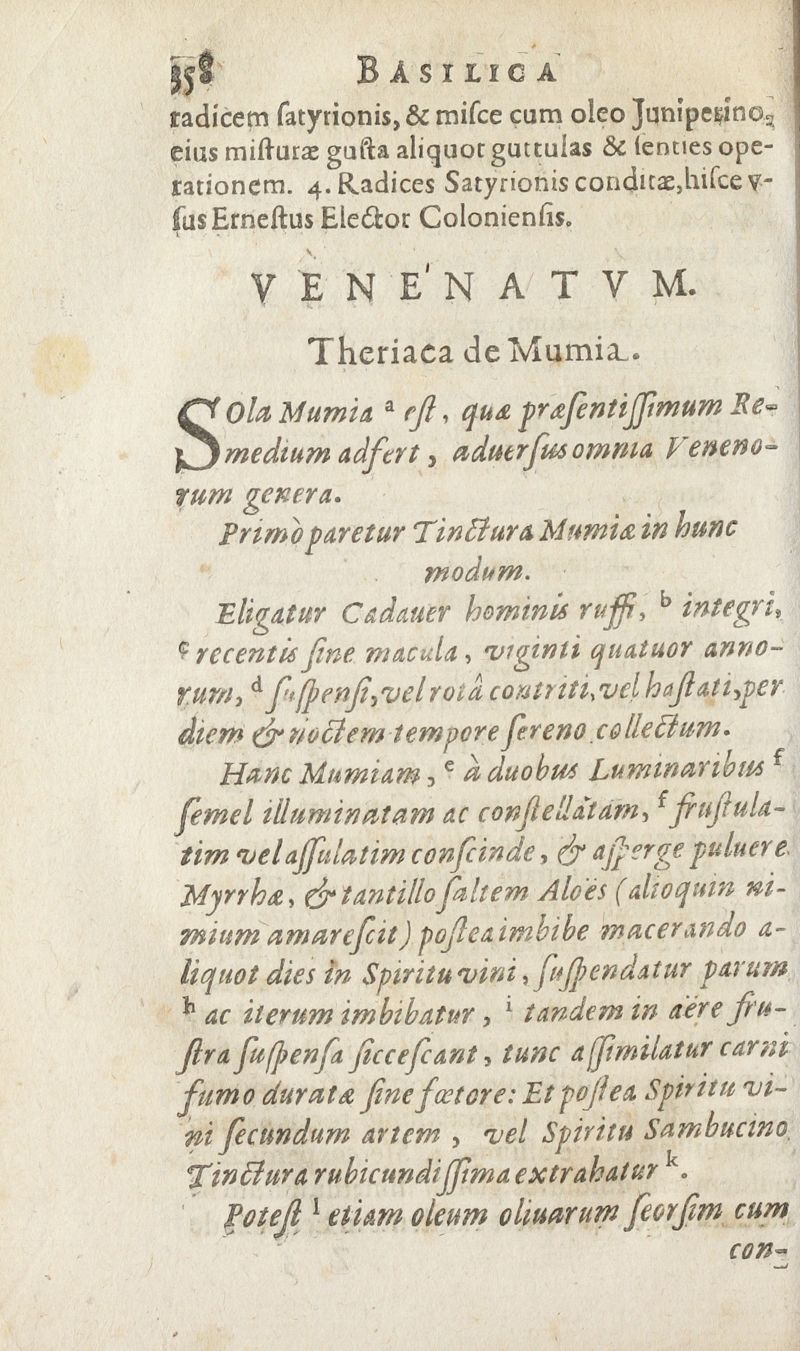 358 BASILICA
radicem ſatyrionis, & miſce cum oleo Juniperino,
eius miſturæ guſta aliquot guttulas & ſenties ope-
rationem. 4. Radices Satyrionis conditæ, hiſce v-
ſus Erneſtus Elector Colonienſis.
VENENATVM.
Theriaca de Mumia.
SOla Mumia ᵃ eſt, quæ præſentiſſimum Re-
medium adfert, aduerſus omnia Veneno-
rum genera.
Primò paretur Tinctura Mumiæ in hunc
modum.
Eligatur Cadauer hominis ruffi, ᵇ integri,
ᶜ recentis ſine macula, viginti quatuor anno-
rum, ᵈ ſuſpenſi, vel rotâ contriti, vel haſtati, per
diem & noctem tempore ſereno collectum.
Hanc Mumiam, ᵉ à duobus Luminaribus ᶠ
ſemel illuminatam ac conſtellatam, ᶠ fruſtula-
tim vel aſſulatim conſcinde, & aſperge puluere
Myrrhæ, & tantillo ſaltem Aloës (alioquin ni-
mium amareſcit) poſtea imbibe macerando a-
liquot dies in Spiritu vini, ſuſpendatur parum
ʰ ac iterum imbibatur, ⁱ tandem in aëre fru-
ſtra ſuſpenſa ſicceſcant, tunc aſſimilatur carni
fumo duratæ ſine fœtore: Et poſtea Spiritu vi-
ni ſecundum artem, vel Spiritu Sambucino
Tinctura rubicundiſſima extrahatur ᵏ.
Poteſt ˡ etiam oleum oliuarum ſeorſim cum
con-